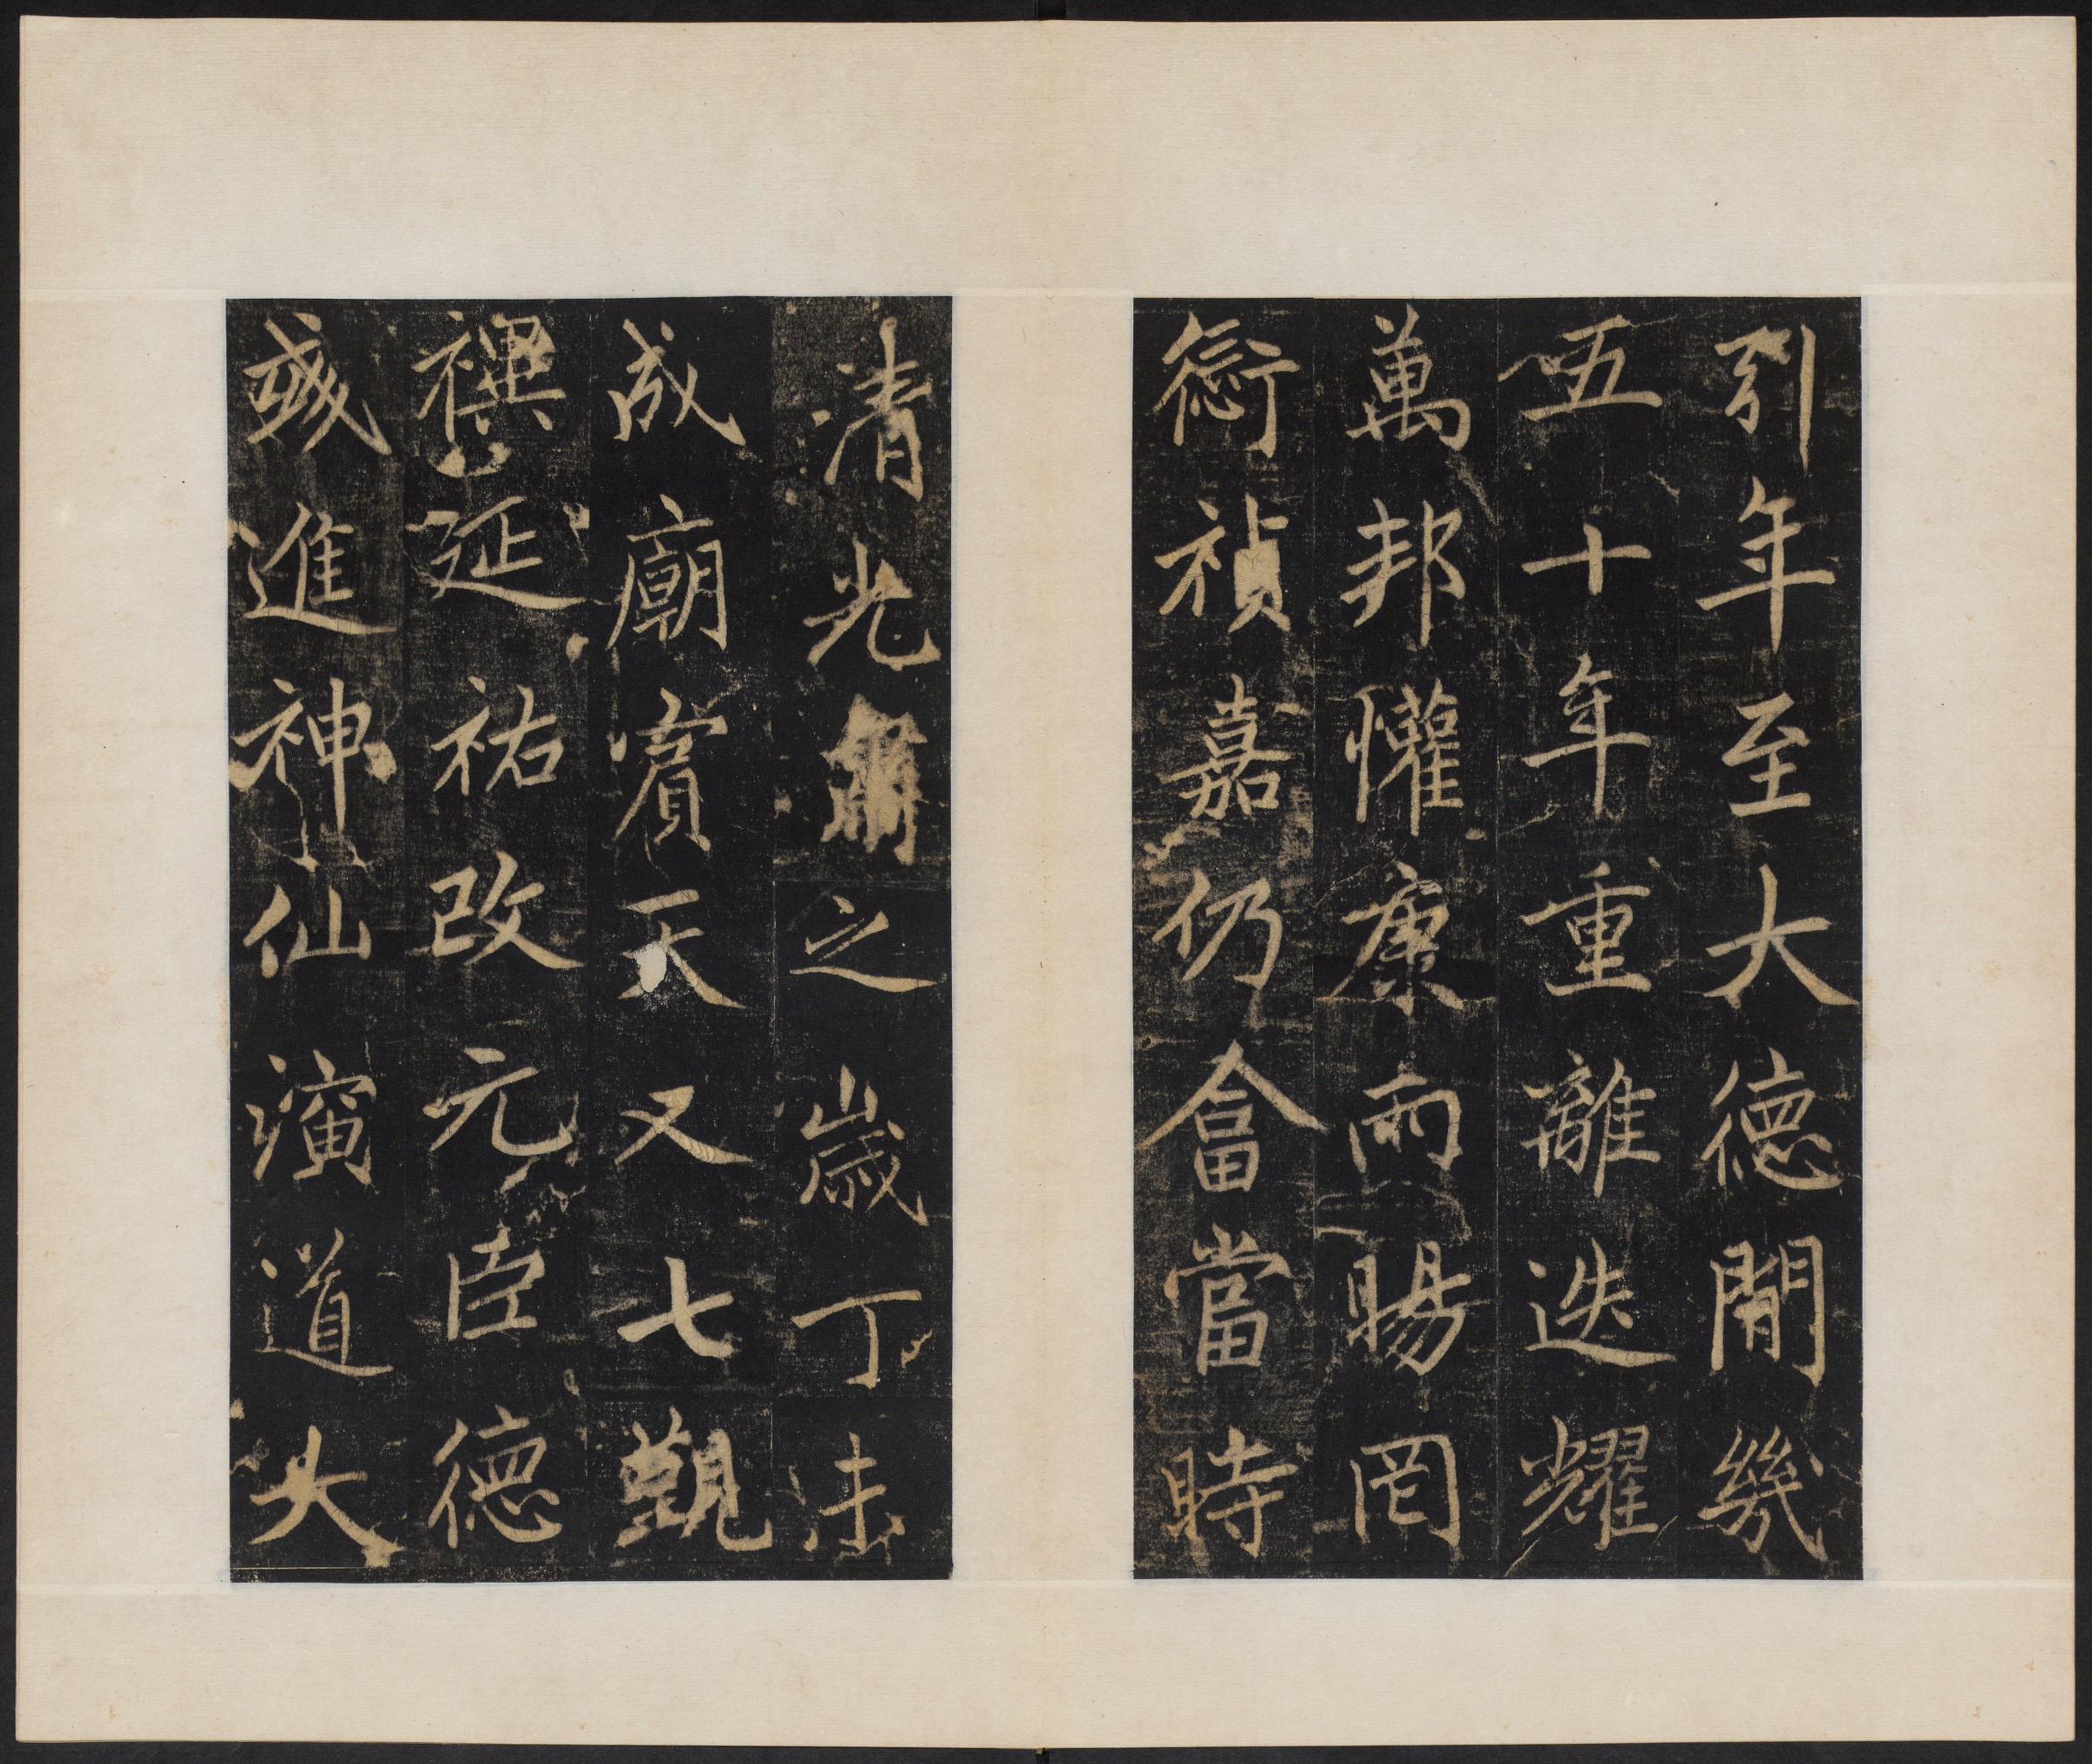 引年至大德閒幾
五十年重離迭耀
萬邦懽康雨暘罔
愆禎嘉仍畣當時
清光之歲丁未
成廟賓天又七觀
禩延祐改元臣德
彧進神仙演道大